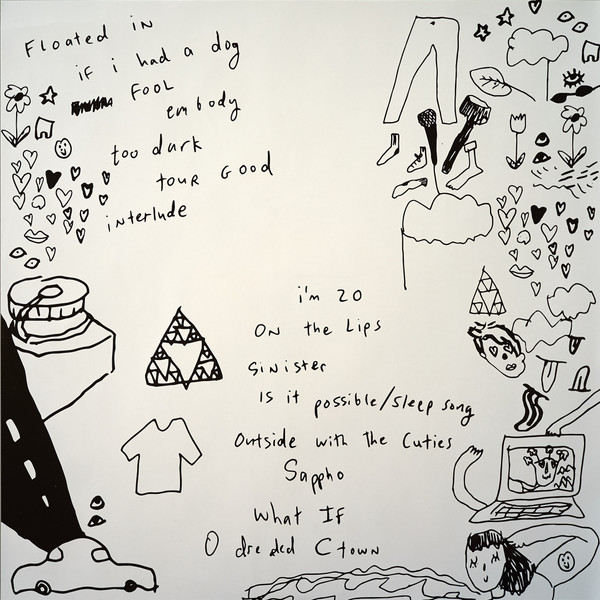 Floated in
if i had a dog
FOOL
embody
too dark
tour Good
interlude
i'm 20
On the Lips
Sinister
Is it possible/sleep song
Outside with the Cuties
Sappho
What If
O dreaded C town